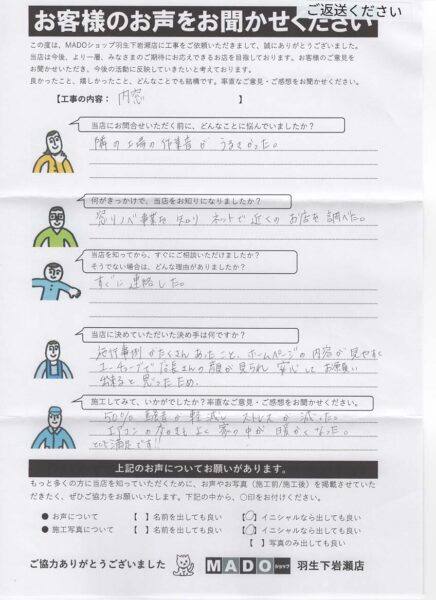 ご返送ください
お客様のお声をお聞かせください
この度は、MADOショップ羽生下岩瀬店に工事をご依頼いただきまして、誠にありがとうございました。
当店は今後、より一層、みなさまのご期待にお応えできるお店を目指しております。お客様のご意見を
お聞かせいただき、今後の活動に反映していきたいと考えております。
良かったこと、嬉しかったこと、どんなことでも結構です。率直なご意見・ご感想をお聞かせください。
【工事の内容: 内窓 】
当店にお問合せいただく前に、どんなことに悩んでいましたか？
隣の工場の作業音がうるさかった。
何がきっかけで、当店をお知りになりましたか？
窓リノベ事業を知り ネットで近くのお店を調べた。
当店を知ってから、すぐにご相談いただけましたか？
そうでない場合は、どんな理由がありましたか？
すぐに連絡した。
当店に決めていただいた決め手は何ですか？
施行事例がたくさんあったこと、ホームページの内容が見やすく
ユーチューブで店長さんの顔が見られ安心してお願い
出来ると思ったため。
施工してみて、いかがでしたか？率直なご意見・ご感想をお聞かせください。
50% 騒音が軽減し ストレスが減った。
エアコンの効きもよく家の中が暖かくなった。
とても満足です!!
上記のお声についてお願いがあります。
もっと多くの方に当店を知っていただくために、お声やお写真(施工前/施工後)を掲載させていた
だきたく、ぜひご協力をお願いいたします。下記の中から、○印をお付けください。
● お声について 【 】名前を出しても良い 【○】イニシャルなら出しても良い
● 施工写真について 【 】名前を出しても良い 【○】イニシャルなら出しても良い
【 】写真のみ出しても良い
ご協力ありがとうございました MADOショップ 羽生下岩瀬店